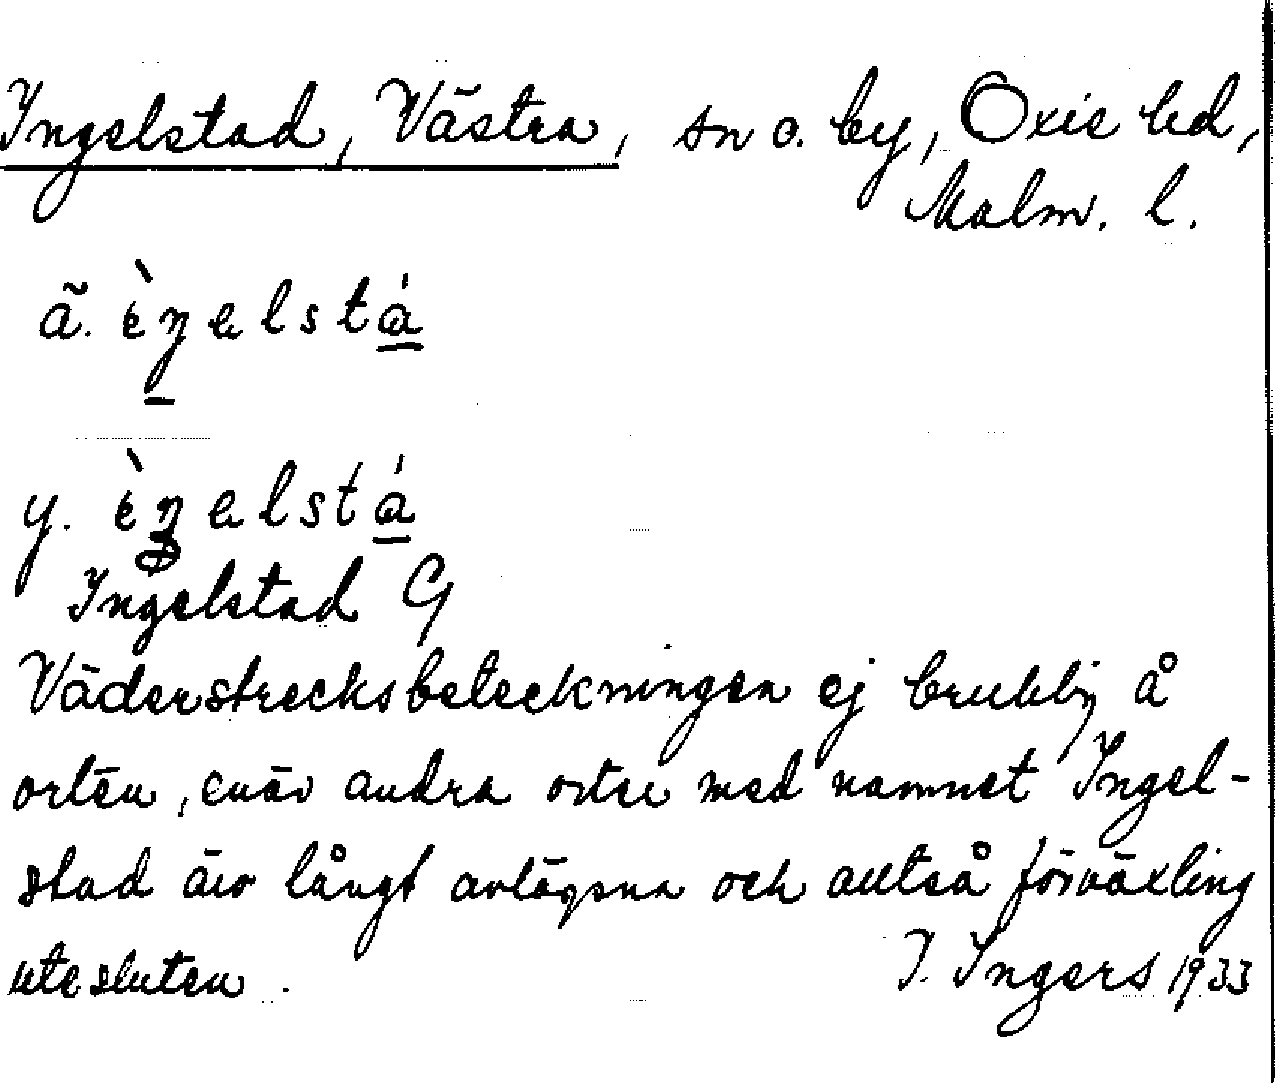 Ingelstad, Västra, sn o. by, Oxie hd,
Malm. l.
ä. èŋelstá
y. èŋelstá
Ingelstad G
Väderstrecksbeteckningen ej bruklig å
orten, enär andra orter med namnet Ingel-
stad äro långt avlägsna och alltså förväxling
utesluten.
I. Ingers 1933